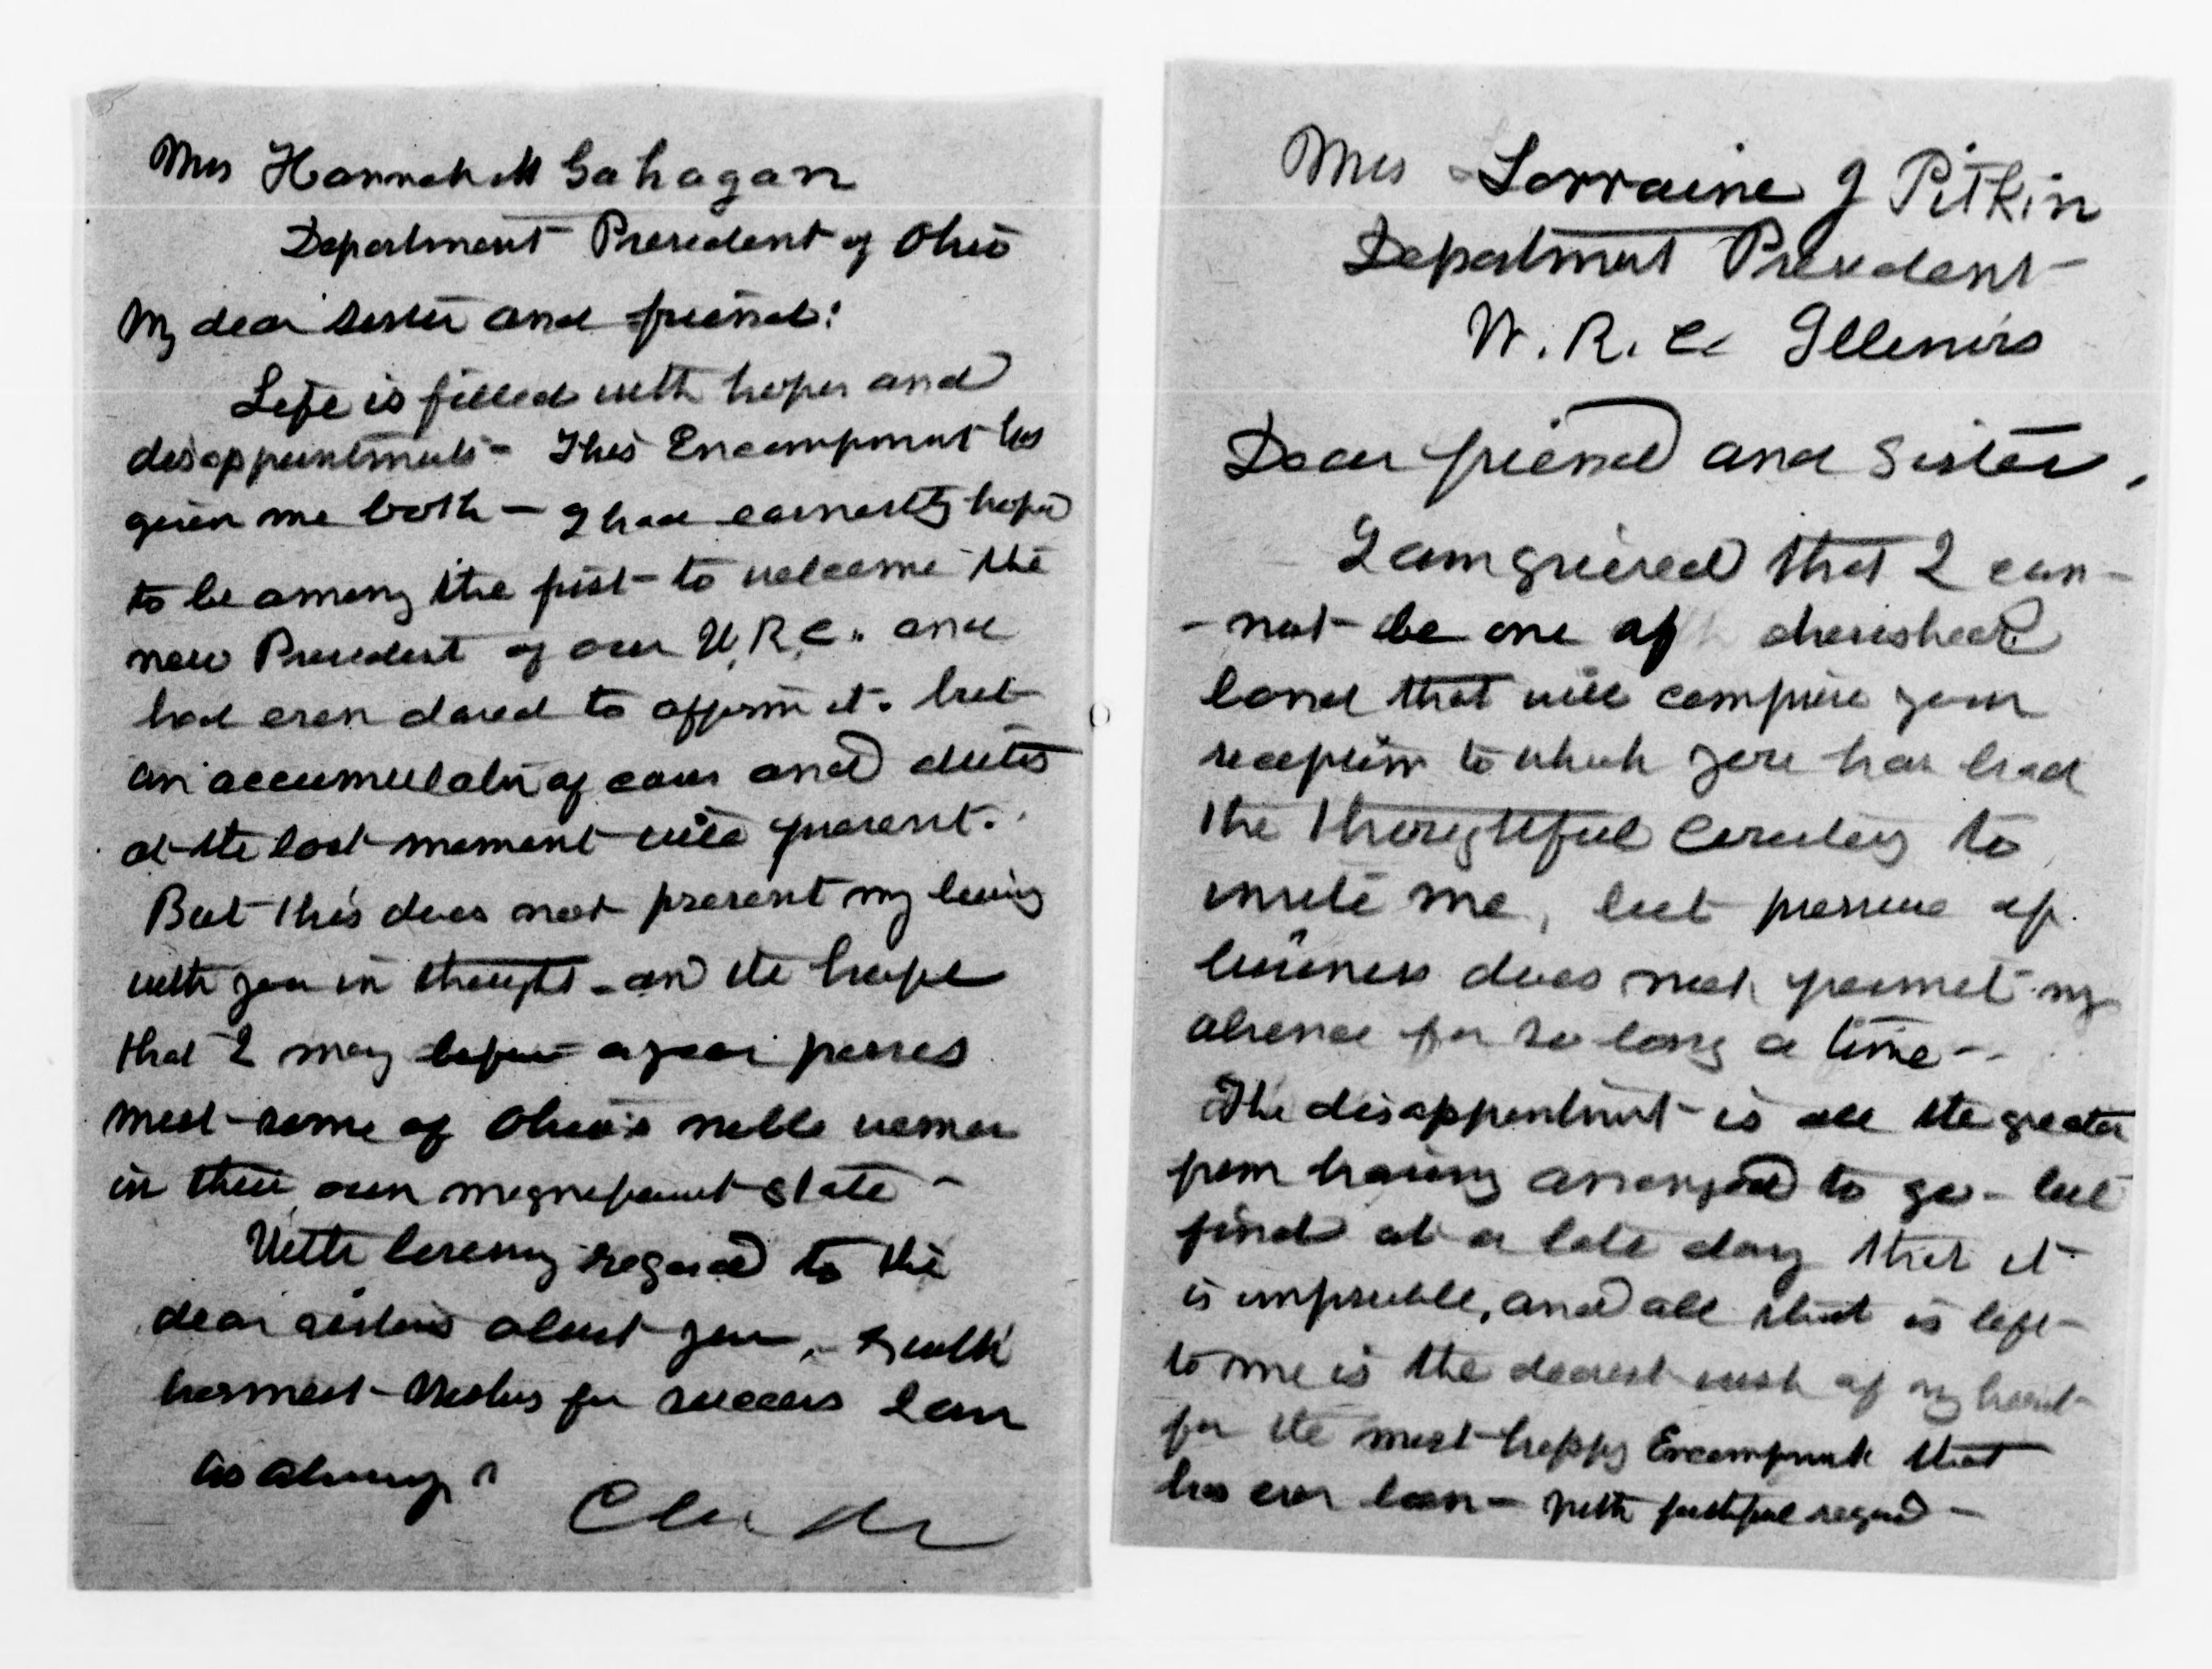 Mrs Hannah M Gahagan
Department President of Ohio
My dear Sister and friend:
Life is filled with hopes and
disappointments - This Encampment has
given me both - I had earnestly hoped
to be among the first to welcome the
new President of our W.R.C. and
had even dared to affirm it. but
an accumulation of cares and duties
at the last moment will prevent.
But this does not prevent my being
with you in thought - and the hope
that I may before a year passes
meet some of Ohio's noble women
in their own magnificent state -
With loving regard to the
dear sisters about you, & with
warmest wishes for success I am
as always
Mrs Lorraine J Pitkin
Department President
W. R. C. Illinois
Dear friend and Sister,
I am grieved that I can-
-not be one of cherished
band that will comprise your
reception to which you have had
the thoughtful courtesy to
invite me, but pressure of
business does not permit my
absence for so long a time -
The disappointment is all the greater
from having arranged to go - but
find at a late day that it
is impossible, and all that is left
to me is the dearest wish of my heart
for the most happy Encampment that
has ever been - With faithful regard -